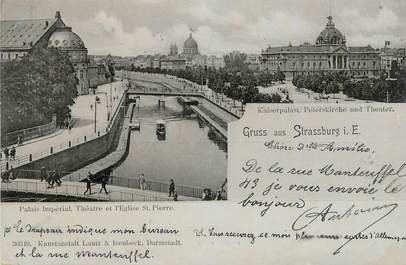 Kaiserpalast, Peterskirche und Theater.
Gruss aus Strassburg i. E.
Chère
De la rue Manteuffel
43 je vous envoie le
bonjour
Palais Impérial, Théatre et l'Eglise St. Pierre.
Le drapeau indique mon bureau
et la rue Manteuffel
Kunstanstalt Lautz & Isenbeck, Darmstadt.